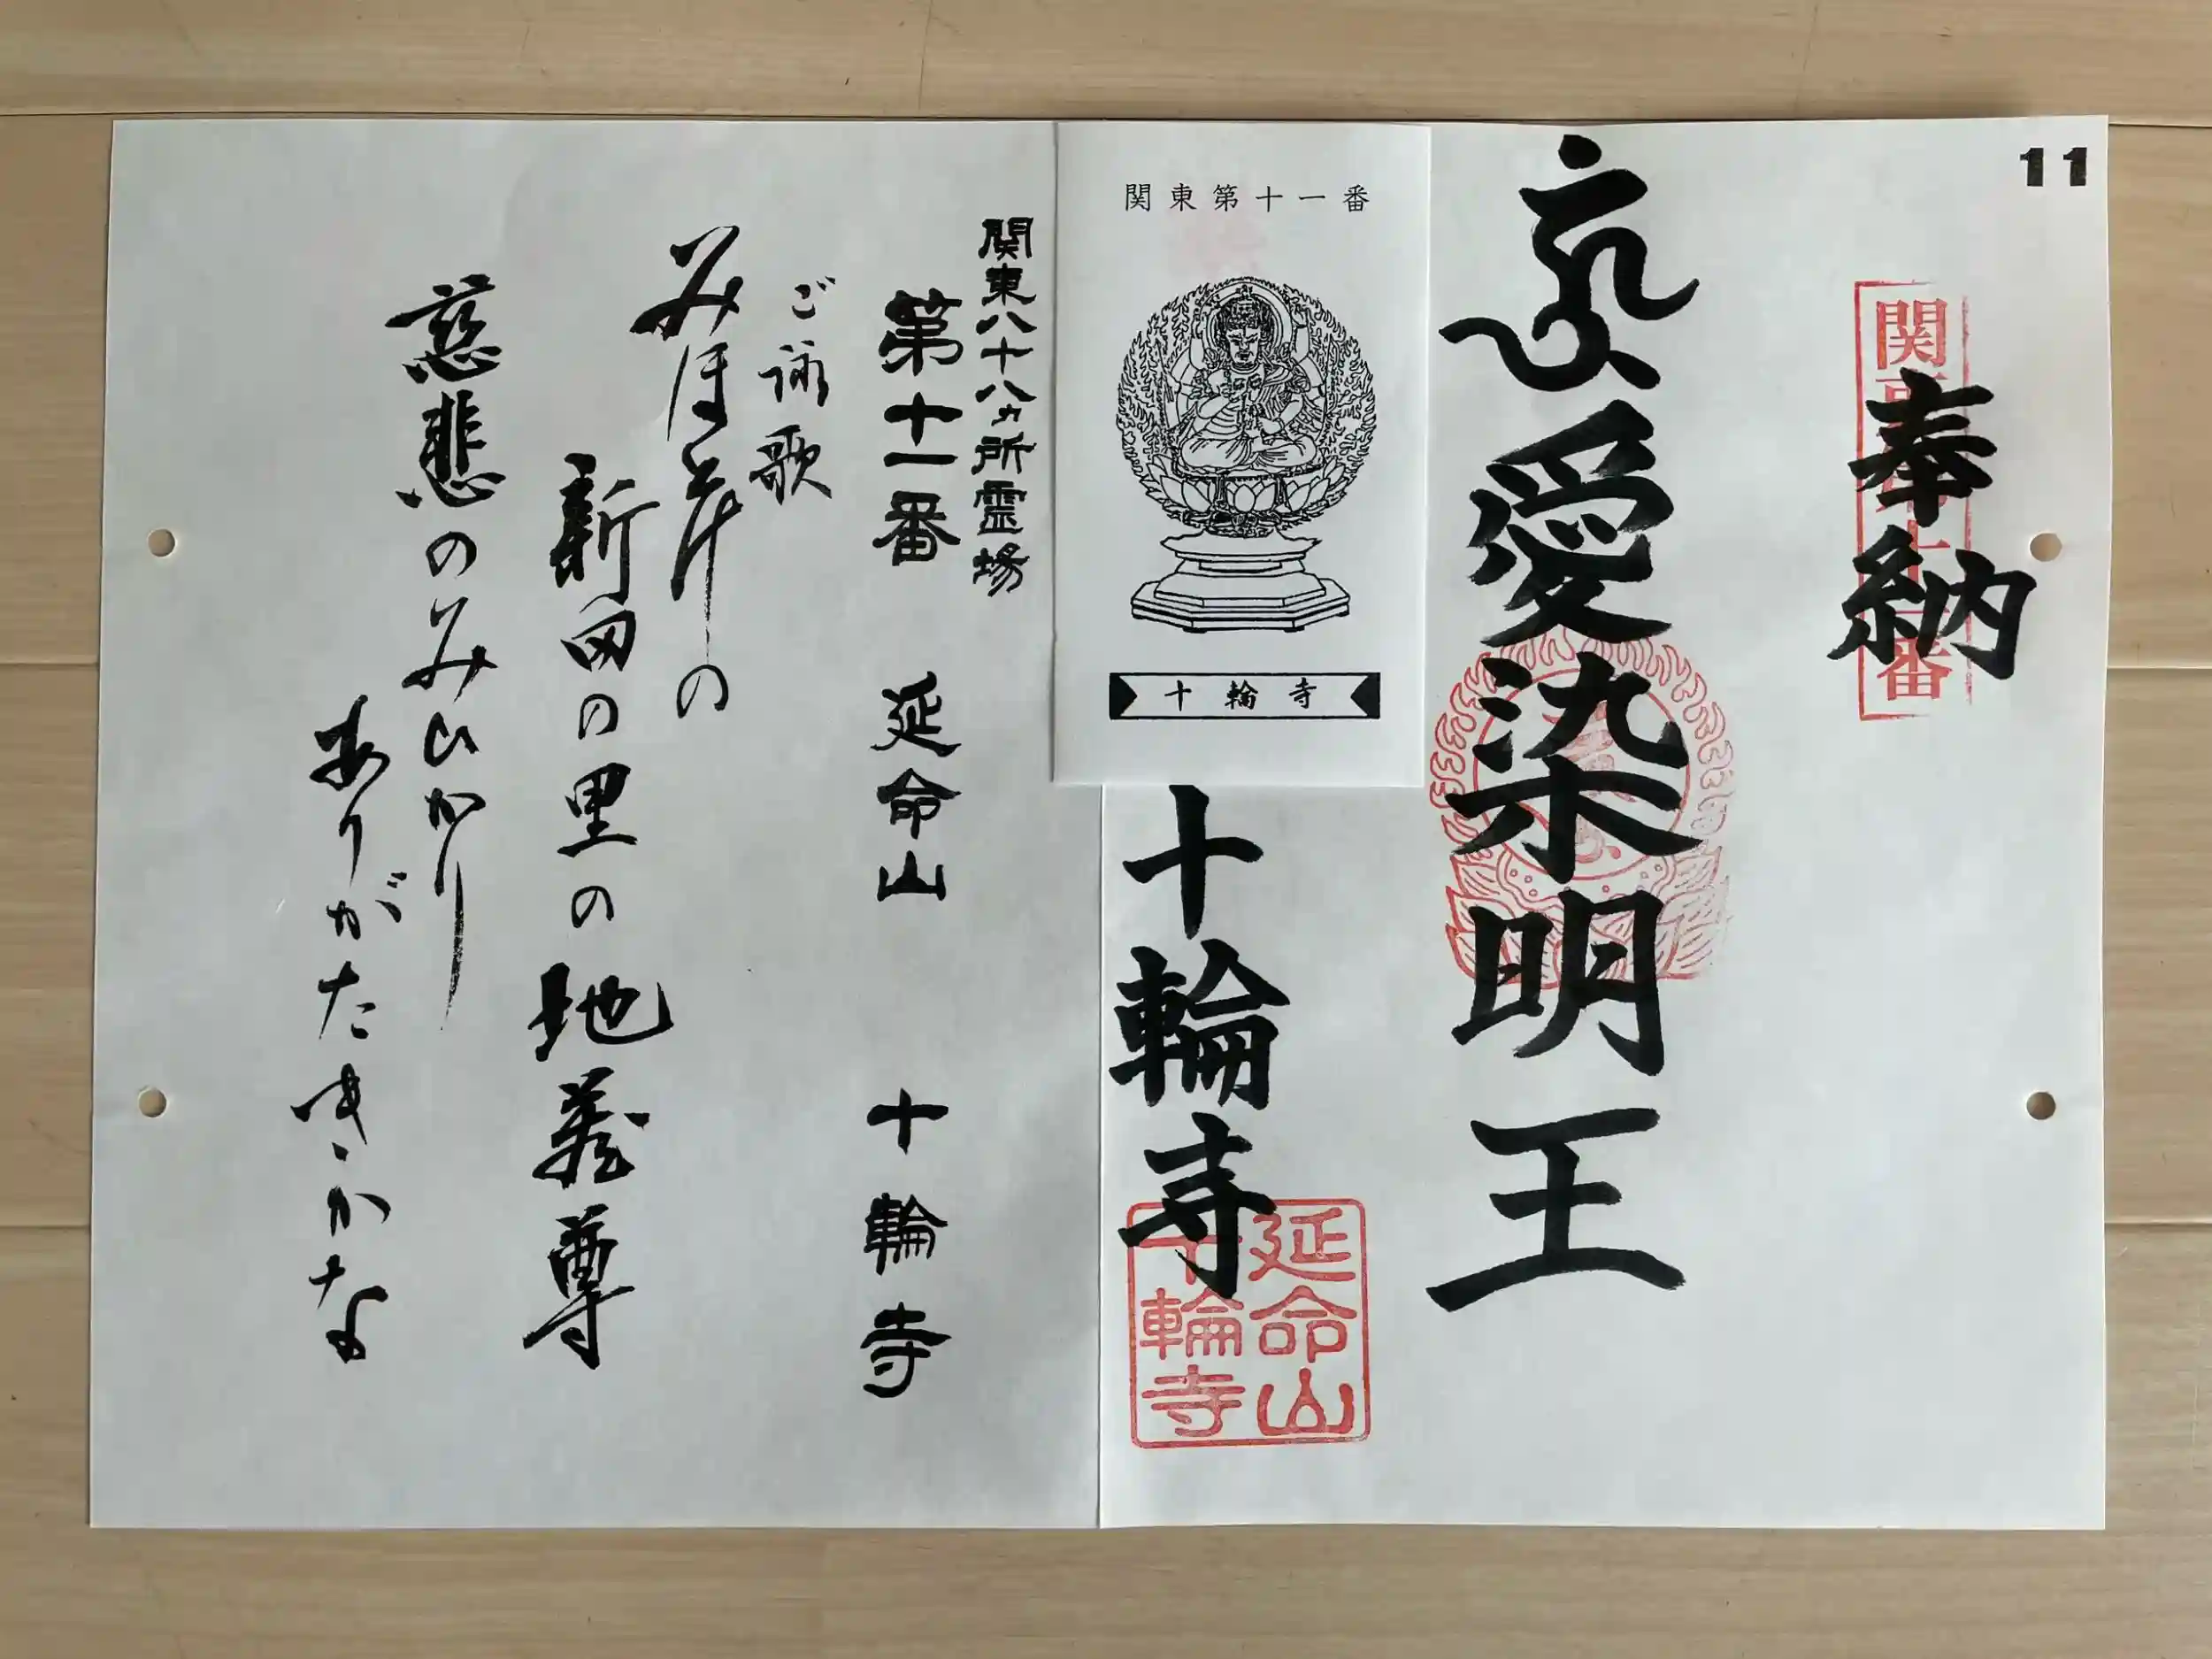 11
奉納
愛染明王
十輪寺
延命山
十輪寺
関東第十一番
十輪寺
関東八十八ヵ所霊場
第十一番 延命山 十輪寺
ご詠歌
みほとけの
新田の里の地蔵尊
慈悲のみひかり
ありがたきかな